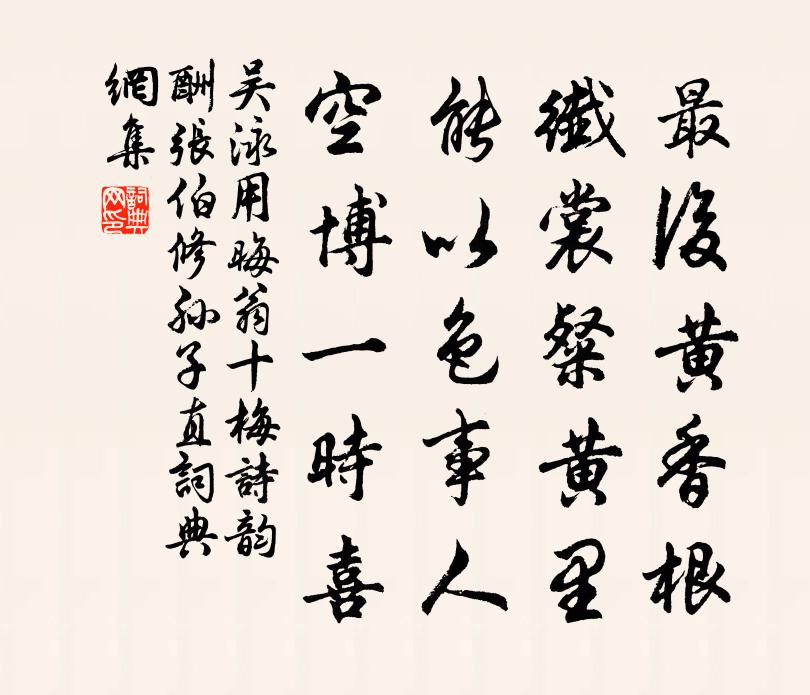 最後黃香根
纖裳粲黃里
能以色事人
空博一時喜
吴泳用晦翁十梅詩韵
酬張伯修孙子直詞典
網集
詞典
网印